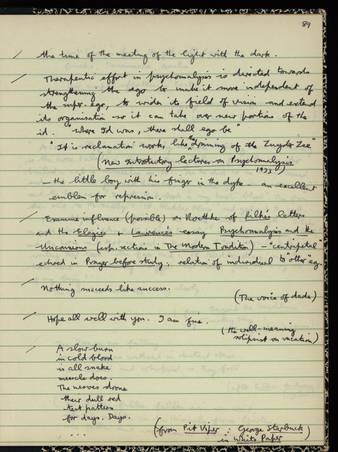 89
the time of the meeting of the light with the dark.
Therapeutic effort in psychoanalysis is devoted towards
strengthening the ego to make it more independent of
the super-ego, to widen its field of vision and extend
its organisation so it can take over new portions of the
id. "where Id was, there shall ego be"
"It is reclamation work, like the draining of the Zuyder Zee"
(New Introductory Lectures on Psychoanalysis
1933)
— the little boy with his finger in the dyke — an excellent
emblem for repression.
Examine influence (possible) on Roethke of Rilke's letters
and the Elegies & Lawrence's essay Psychoanalysis and the
Unconscious (esp. section in The Modern Tradition) — "centripetal"
echoed in Prayer before Study; relation of individual to "other" eg.
Nothing succeeds like success.
(The voice of dada)
Hope all well with you. I am fine.
(the well-meaning
solipsist on vacation)
A slow burn
in cold blood
is all snake
muscle does.
The nerves drone
their dull red
test pattern
for days. Days.
....
(from Pit Viper: George Starbuck)
in White Paper